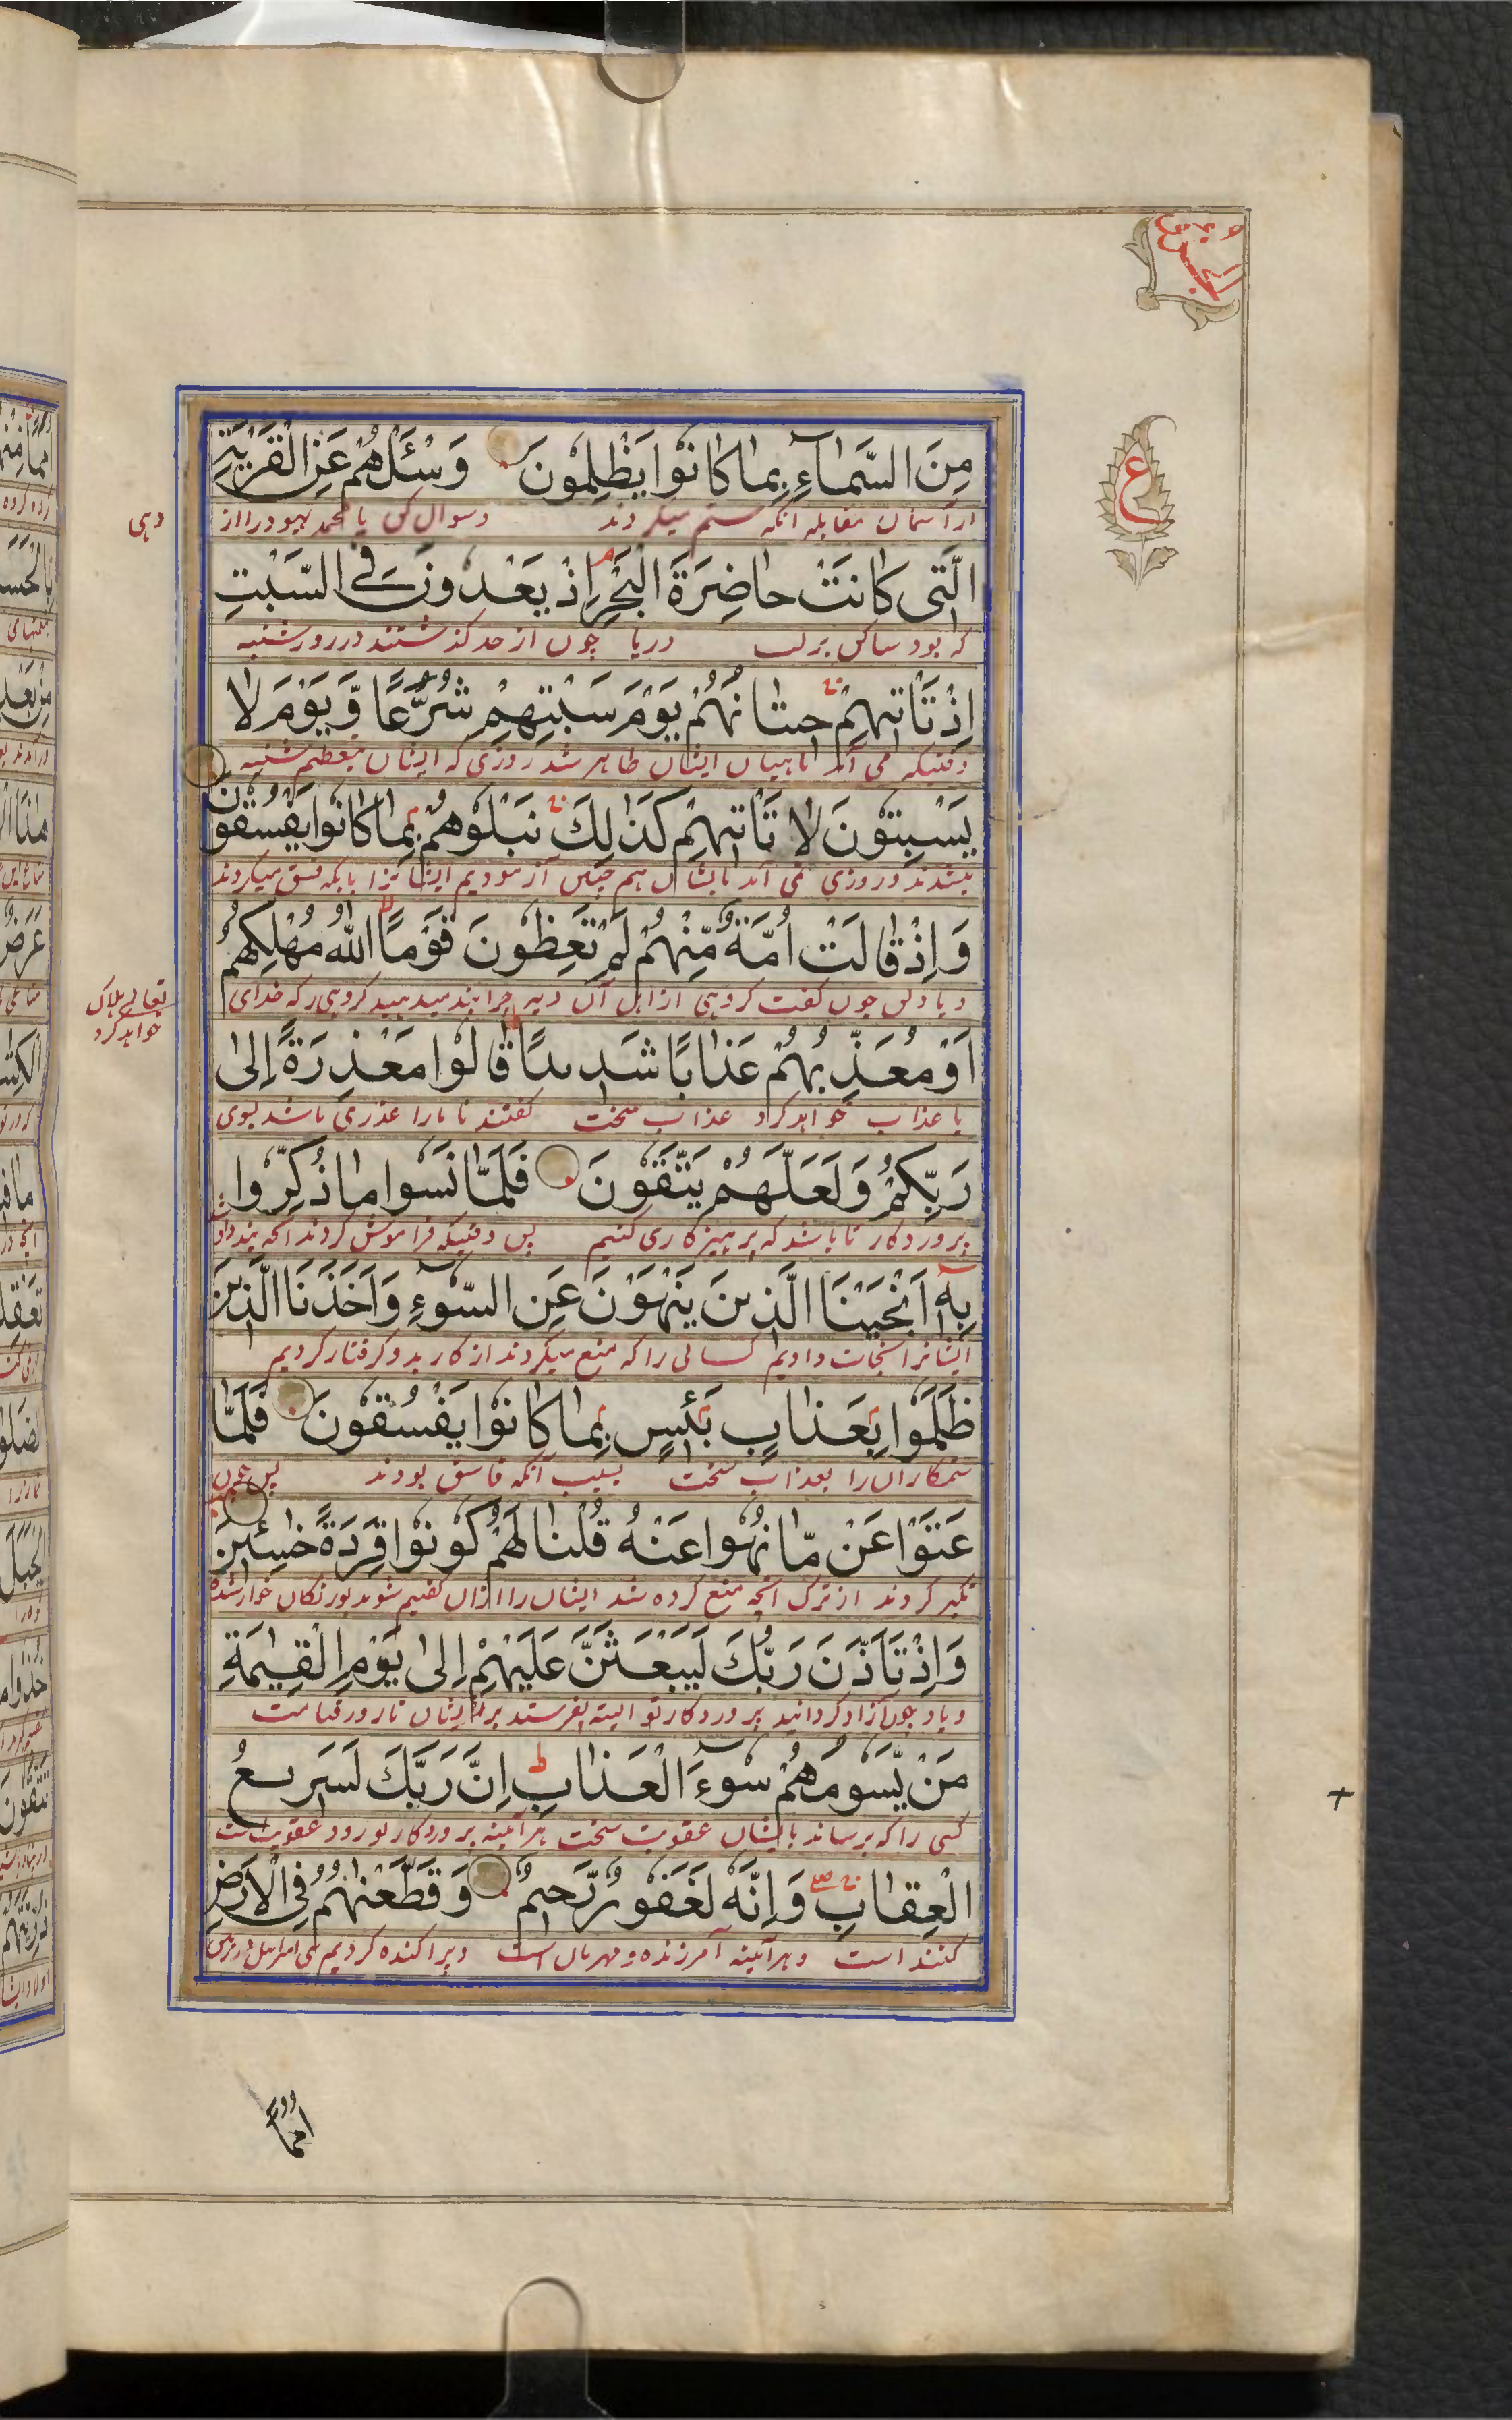 مِنَ السَّمَآءِ بِمَا كَانُوْا يَظْلِمُوْنَ وَسْئَلْهُمْ عَنِ الْقَرْيَةِ
از آسمان مقابله آنکه ستم میکردند وسوال کن یا محمد یهود را از
دهی
الَّتِی كَانَتْ حَاضِرَةَ الْبَحْرِ اِذْ يَعْدُوْنَ فِی السَّبْتِ
که بود ساکن بر لب دریا چون از حد گذشتند در روز شنبه
اِذْ تَاْتِيْهِمْ حِيْتَانُهُمْ يَوْمَ سَبْتِهِمْ شُرَّعًا وَّ يَوْمَ لَا
وقتیکه می آمد ماهیان ایشان ظاهر شد روزی که ایشان بتعظیم شنبه
يَسْبِتُوْنَ لَا تَاْتِيْهِمْ كَذٰلِكَ نَبْلُوْهُمْ بِمَا كَانُوْا يَفْسُقُوْنَ
و روزی نمی آمد بایشان هم چنین آزمودیم ایشانرا بانکه فسق میکردند
وَ اِذْ قَالَتْ اُمَّةٌ مِّنْهُمْ لِمَ تَعِظُوْنَ قَوْمًا اللّٰهُ مُهْلِكُهُمْ
و یاد کن چون گفت گروهی از اهل آن دیه چرا پند میدهید گروهی را که خدای
تعالے هلاک
خواهد کرد
اَوْ مُعَذِّبُهُمْ عَذَابًا شَدِيْدًا قَالُوْا مَعْذِرَةً اِلٰی
یا عذاب خواهد کرد عذاب سخت گفتند تا ما را عذری باشد بسوی
رَبِّكُمْ وَ لَعَلَّهُمْ يَتَّقُوْنَ فَلَمَّا نَسُوْا مَا ذُكِّرُوْا
پروردگار تا باشد که پرهیزکاری کنیم پس وقتیکه فراموش کردند آنچه پند داد
بِهٖ اَنْجَيْنَا الَّذِيْنَ يَنْهَوْنَ عَنِ السُّوْٓءِ وَ اَخَذْنَا الَّذِيْنَ
ایشانرا نجات دادیم کسانی را که منع میکردند از کار بد و گرفتار کردیم
ظَلَمُوْا بِعَذَابٍ بَئِيْسٍ بِمَا كَانُوْا يَفْسُقُوْنَ فَلَمَّا
ستمکاران را بعذاب سخت بسبب آنکه فاسق بودند پس چون
عَتَوْا عَنْ مَّا نُهُوْا عَنْهُ قُلْنَا لَهُمْ كُوْنُوْا قِرَدَةً خٰسِئِيْنَ
تکبر کردند از ترک آنچه منع کرده شد ایشان را از آن گفتیم شوید بوزنگان خوار شده
وَ اِذْ تَاَذَّنَ رَبُّكَ لَيَبْعَثَنَّ عَلَيْهِمْ اِلٰی يَوْمِ الْقِيٰمَةِ
و یاد چون آزاد گردانید پروردگار تو البته بفرستد بر ایشان تا روز قیامت
مَنْ يَّسُوْمُهُمْ سُوْٓءَ الْعَذَابِ اِنَّ رَبَّكَ لَسَرِيْعُ
کسی را که برساند بایشان عقوبت سخت هر آئینه پروردگار تو زود عقوبت
الْعِقَابِ وَ اِنَّهٗ لَغَفُوْرٌ رَّحِيْمٌ وَ قَطَّعْنٰهُمْ فِی الْاَرْضِ
کنند است و هر آئینه آمرزنده و مهربان است و پراکنده کردیم بنی اسرائیل در زمین
ع
اُمَمًا